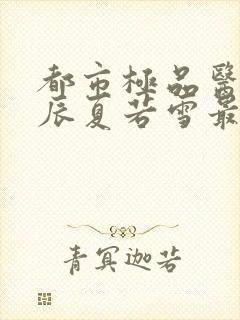 都市極品醫
辰夏若雪最
青冥迦若